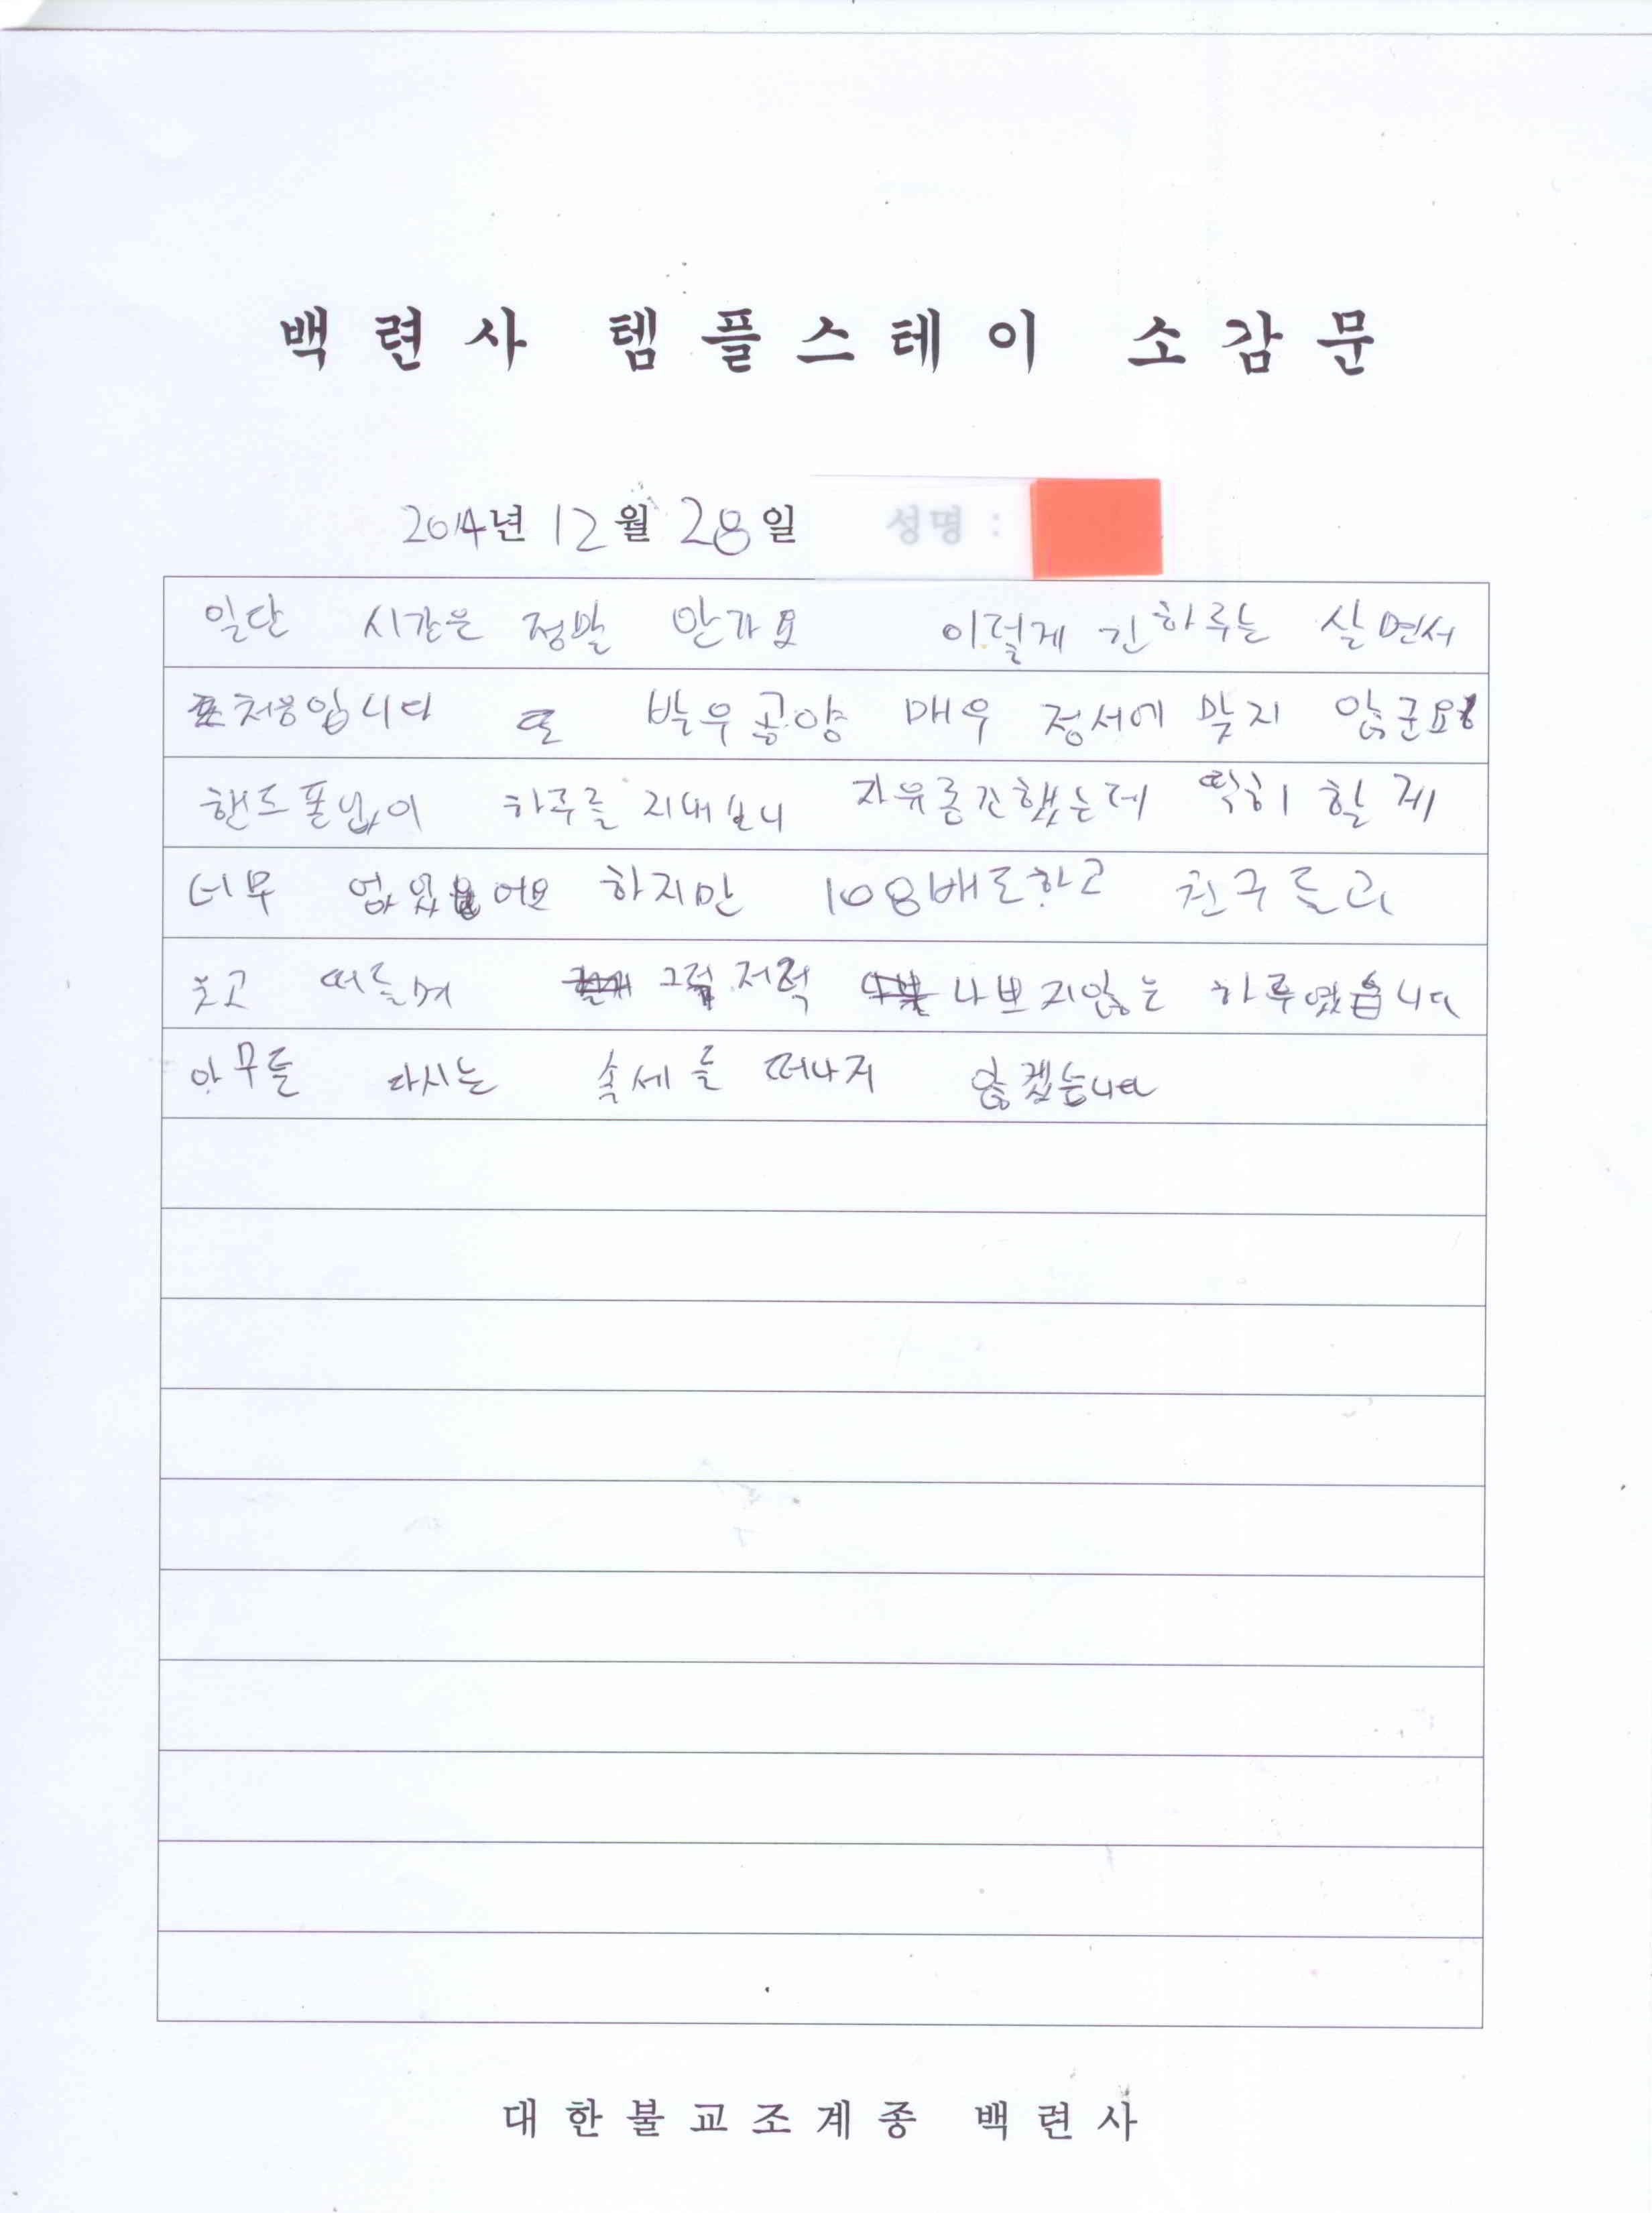 백련사 템플스테이 소감문
2014년 12월 28일 성명 :
일단 시간은 정말 안가요 이렇게 긴하루는 살면서
처음입니다 또 발우공양 매우 정서에 맞지 않군요
핸드폰없이 하루를 지내보니 자유롭긴했는데 딱히 할 게
너무 없었어요 하지만 108배도하고 친구들과
웃고 떠들며 그럭저럭 나쁘지않는 하루였습니다
아무튼 다시는 속세를 떠나지 않겠습니다
대한불교조계종 백련사